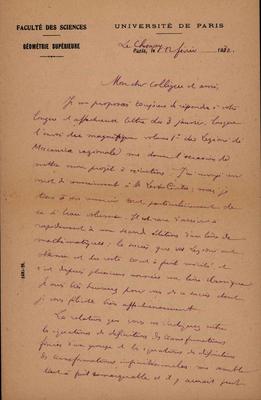 FACULTÉ DES SCIENCES
GÉOMÉTRIE SUPÉRIEURE
UNIVERSITÉ DE PARIS
Le Chesnay
Paris, le 12 février 193
Mon cher Collègue et ami,
Je me proposais toujours de répondre à votre
longue et affectueuse lettre du 3 janvier, lorsque
l'envoi des magnifiques volumes des Lezioni di
Meccanica razionale me donne l'occasion de
mettre mon projet à exécution. J'ai envoyé un
mot de remerciement à mais je
tiens à vous remercier tout particulièrement de
ce beau volume. Il est rare d'arriver
rapidement à une seconde édition d'un livre de
mathématiques; le succès que vos Lezioni ont
obtenu et du reste tout à fait mérité et
est depuis plusieurs années un livre classique
Je suis très heureux pour vous de ce succès dont
je vous félicite bien affectueusement.
La relation que vous m'indiquez entre
les équations de définition des transformations
finies d'un groupe et les équations de définition
des transformations infinitésimales me semble
tout à fait remarquable et il y aurait peut